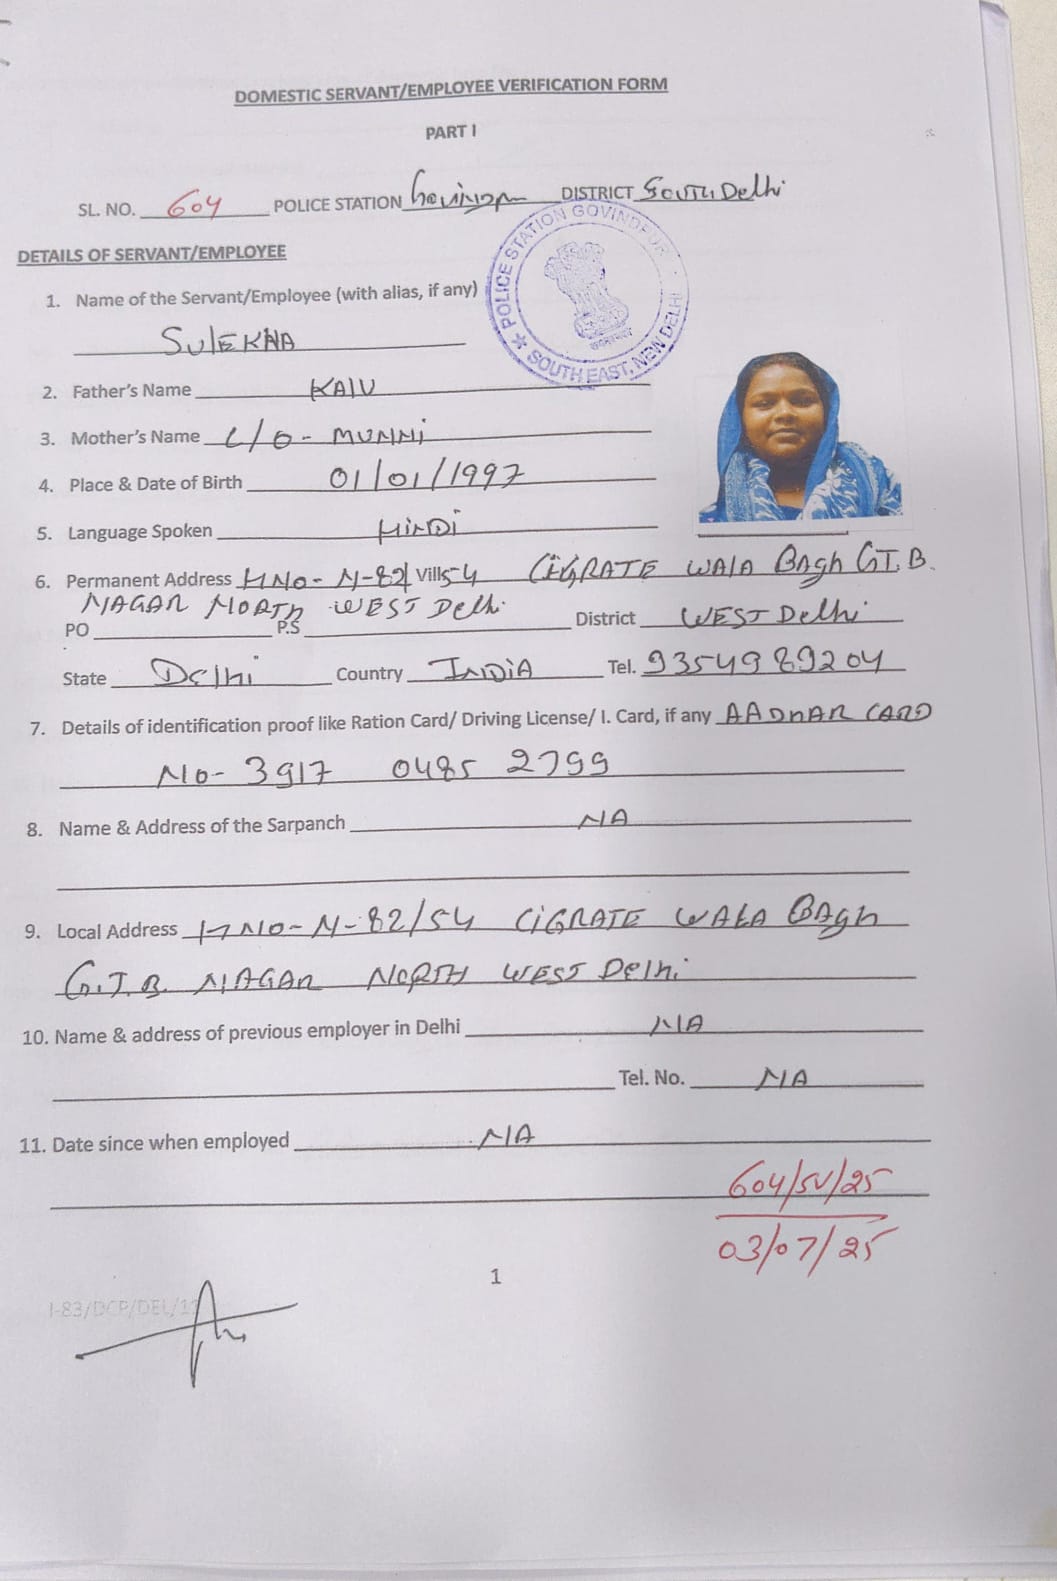 DOMESTIC SERVANT/EMPLOYEE VERIFICATION FORM
PART I
SL. NO. 604 POLICE STATION DISTRICT South Delhi
POLICE STATION GOVINDPURI
SOUTH EAST, NEW DELHI
DETAILS OF SERVANT/EMPLOYEE
1. Name of the Servant/Employee (with alias, if any)
SULEKHA
2. Father's Name KALU
3. Mother's Name C/O - MUNNi
4. Place & Date of Birth 01/01/1997
5. Language Spoken HiNDi
6. Permanent Address H NO - N-82/ Vill 54 CIGRATE WALA BAgh G.T.B.
NAGAR NORTH WEST Delhi
PO P.S District WEST Delhi
State Delhi Country INDiA Tel. 9354989204
7. Details of identification proof like Ration Card/ Driving License/ I. Card, if any AADHAR CARD
No- 3917 0485 2799
8. Name & Address of the Sarpanch NA
9. Local Address H NO - N-82/54 CiGRATE WALA BAgh
G.T.B. NAGAR NORTH WEST Delhi
10. Name & address of previous employer in Delhi NA
Tel. No. NA
11. Date since when employed NA
604/SV/25
03/07/25
1